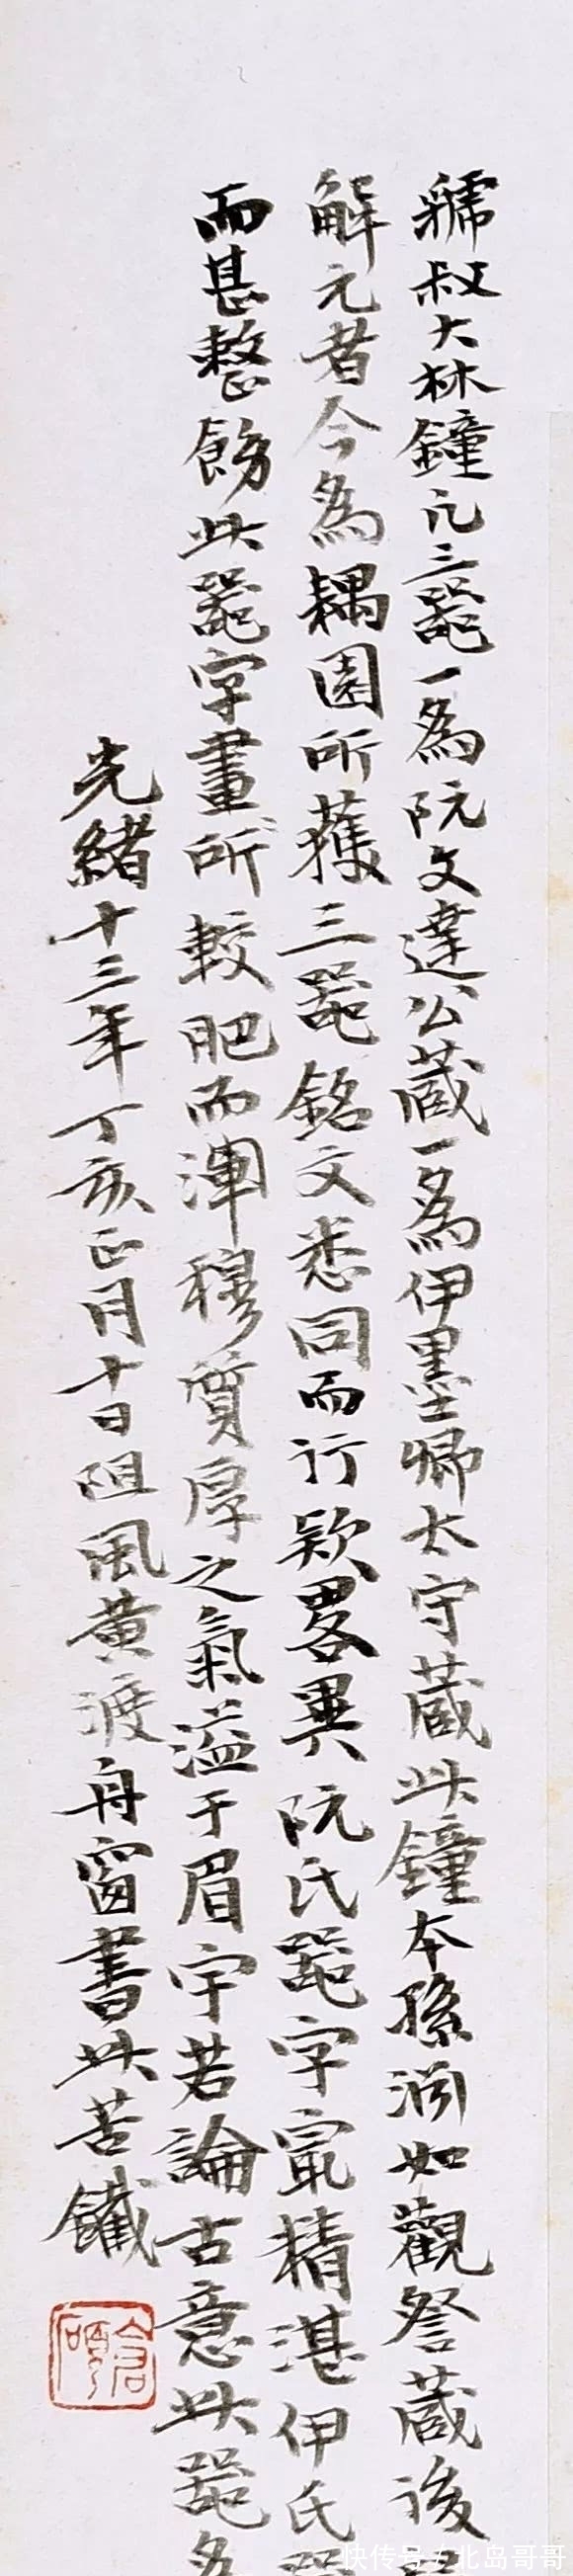 虢叔大林鐘凡三器一為阮文達公藏一為伊墨卿太守藏此鐘本孫淵如觀詧藏後
解元者今為耦園所獲三器銘文悉同而行款畧異阮氏器字寂精湛伊氏
而甚整飭此器字畫所較肥而渾穆質厚之氣溢于眉宇若論古意此器
光緒十三年丁亥正月十日阻風黃渡舟窗書此苦鐵
倉碩
快传号/北岛哥哥